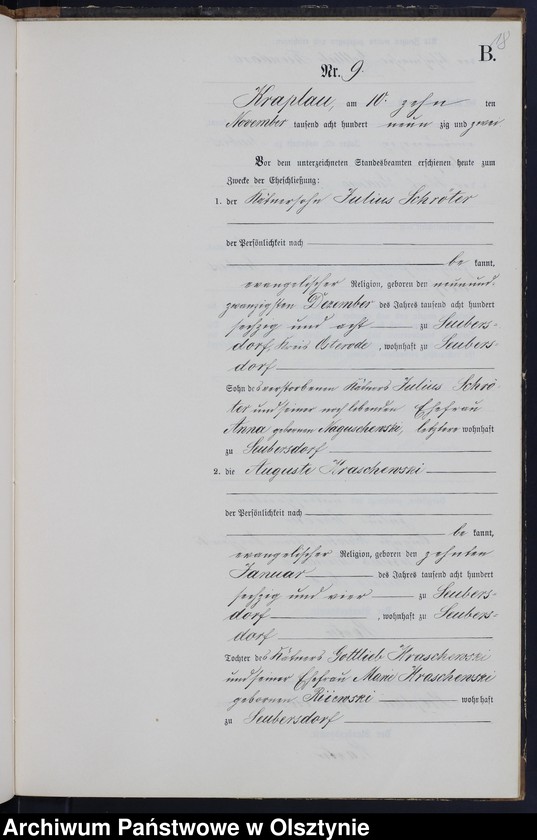 18
B.
Nr. 9.
Kraplau, am 10. zehn ten
November tausend acht hundert neun zig und zwei
Vor dem unterzeichneten Standesbeamten erschienen heute zum
Zwecke der Eheschließung:
1. der Kätnersohn Julius Schröter
der Persönlichkeit nach
be kannt,
evangelischer Religion, geboren den neunund-
zwanzigsten Dezember des Jahres tausend acht hundert
sechzig und acht zu Seubers-
dorf, Kreis Osterode, wohnhaft zu Seubers-
dorf
Sohn des verstorbenen Kätners Julius Schrö
ter und seiner noch lebenden Ehefrau
Anna geborenen Naguschewski, letztere wohnhaft
zu Seubersdorf
2. die Auguste Kraschewski
der Persönlichkeit nach
be kannt,
evangelischer Religion, geboren den zehnten
Januar des Jahres tausend acht hundert
sechzig und vier zu Seubers-
dorf, wohnhaft zu Seubers-
dorf
Tochter des Kätners Gottlieb Kraschewski
und seiner Ehefrau Marie Kraschewski
geborenen wohnhaft
zu Seubersdorf
Archiwum Państwowe w Olsztynie